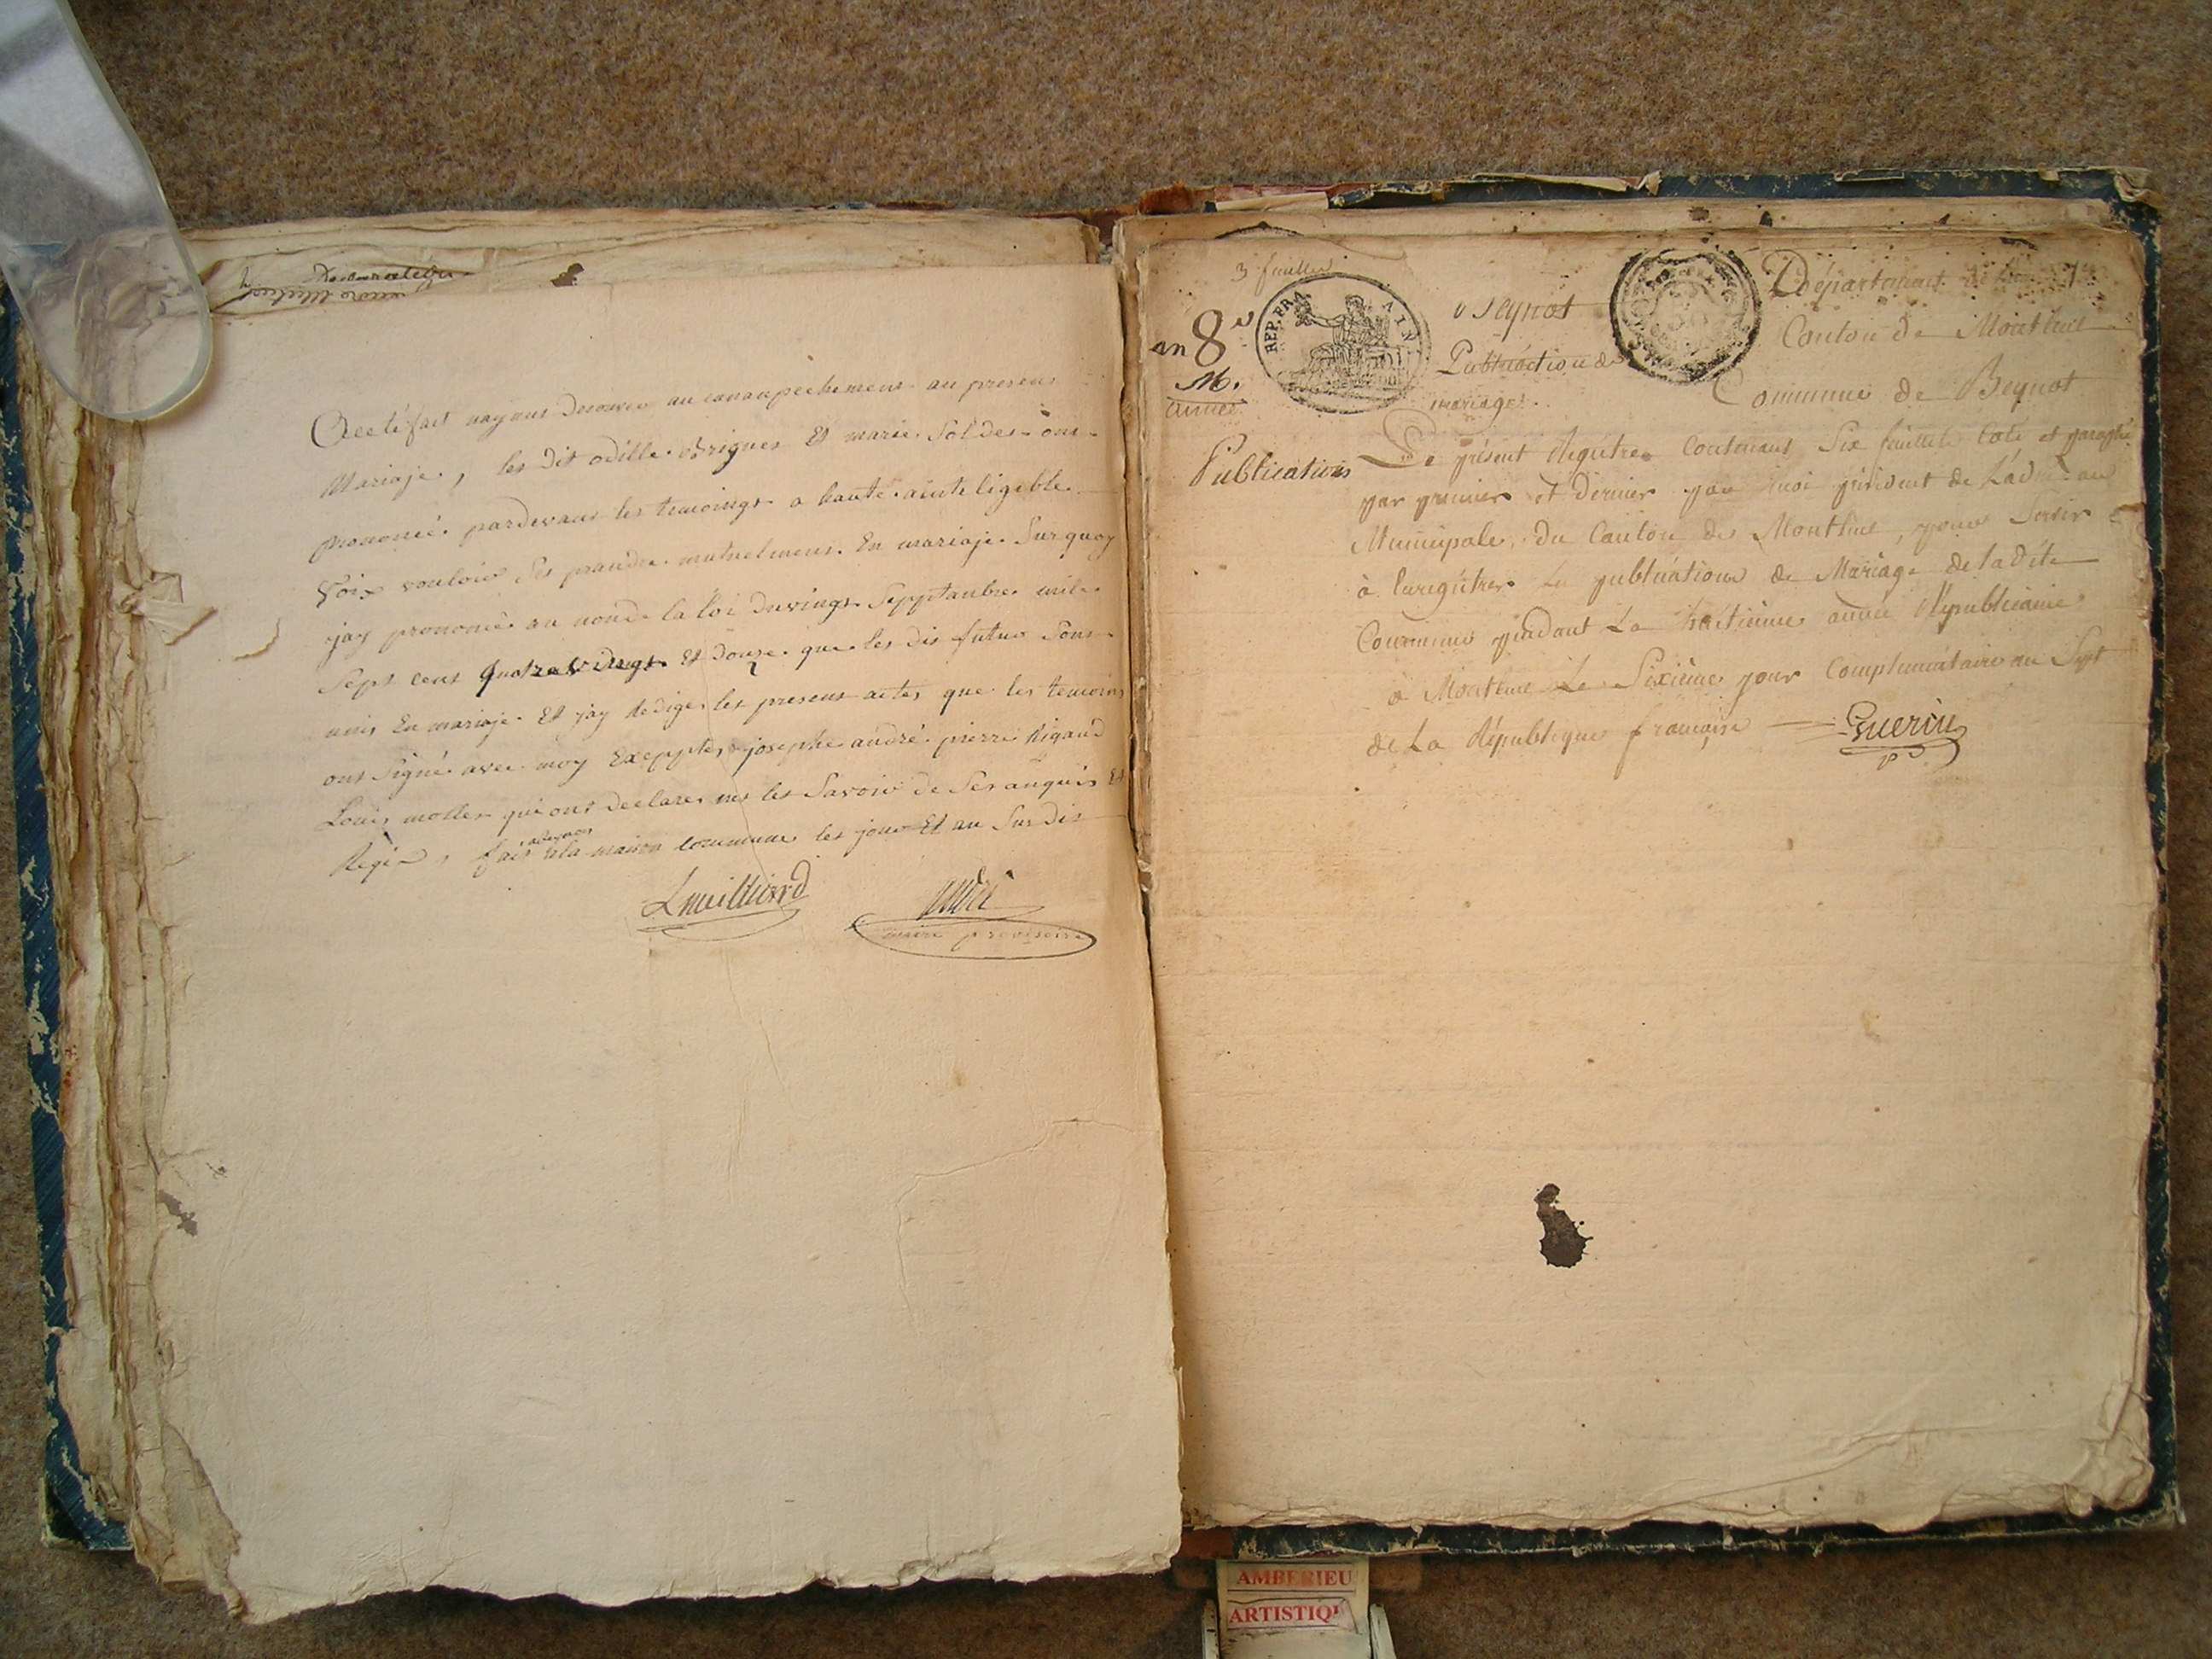 mariaje, les dit odille et marie Soldes ont
prononcé pardevant les temoings a haute ainteligeble
Voix vouloir Ses prandre mutuelmens En mariaje Surquoy
jay prononcé au nond la loi du vingt Sepptanbre mile
Sept cent quatrevingt Et douze que les dis futur Sont
unis En mariaje Et jay Redige les present actes que les temoins
ont Signé avec moy Exepptes josephe andré pierre Rigaud
Louis molles qui ont declares de Ses anquis Et
fait a la maison commune les jour Et an Susdis
maire provisoire
3 feuillets
an 8
M.
année
REP. FRA AIN
Publication de
mariages
Publications
Département de
Canton de Montluel
Commune de Beynot
Le présent Régistre Contenant Six feuillets Coté et paraphé
par premier et dernier par moi président de L'adm.on
Municipale du Canton de Montluel, pour Servir
à Enregistrer Les publications de Mariage de la dite
Commune pendant La huitième année Républicaine
à Montluel Le Sixième jour Complémentaire an Sept
de La République française Guerin
AMBERIEU
ARTISTIQ